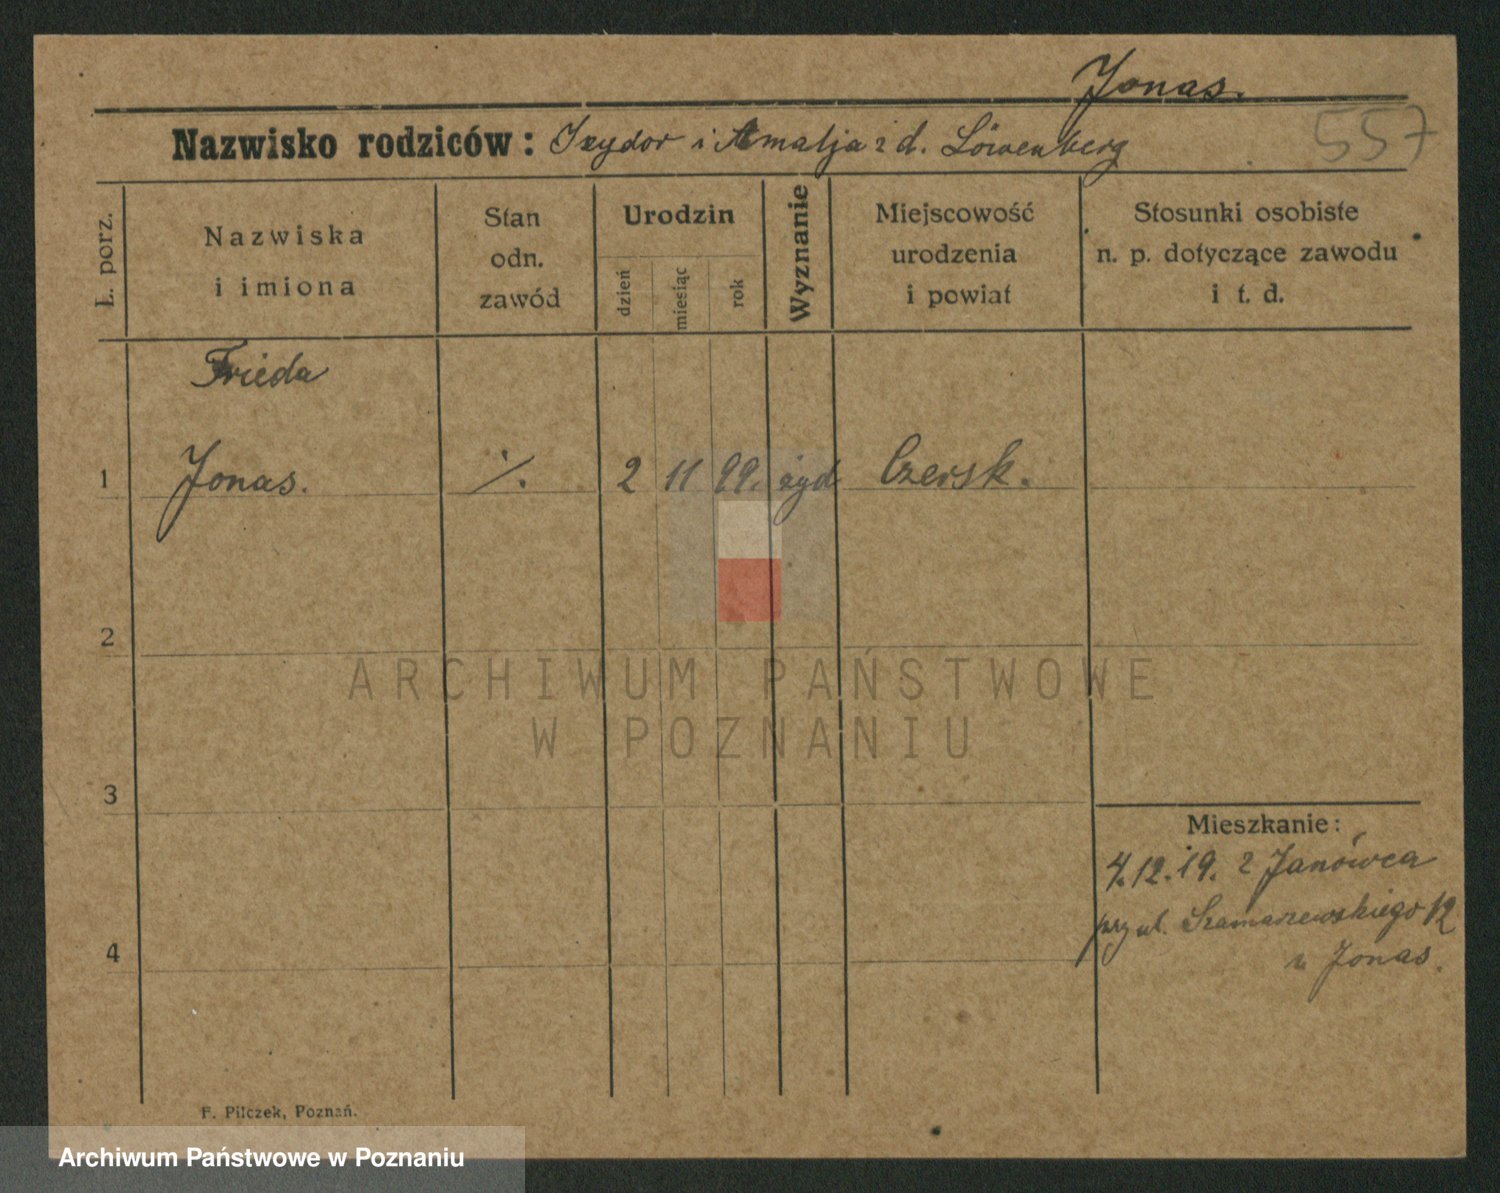 Jonas.
557
Nazwisko rodziców: Izydor i Amalja z d. Löwenberg
Ł. porz.
Nazwiska
i imiona
Stan
odn.
zawód
Urodzin
dzień
miesiąc
rok
Wyznanie
Miejscowość
urodzenia
i powiat
Stosunki osobiste
n. p. dotyczące zawodu
i t. d.
Frieda
1 Jonas. ·/. 2 11 99. żyd Czersk.
2
ARCHIWUM PAŃSTWOWE
W POZNANIU
3
Mieszkanie:
4.12.19. z Janówca
przy ul. Szamarzewskiego 12
u Jonas.
4
F. Pilczek, Poznań.
Archiwum Państwowe w Poznaniu